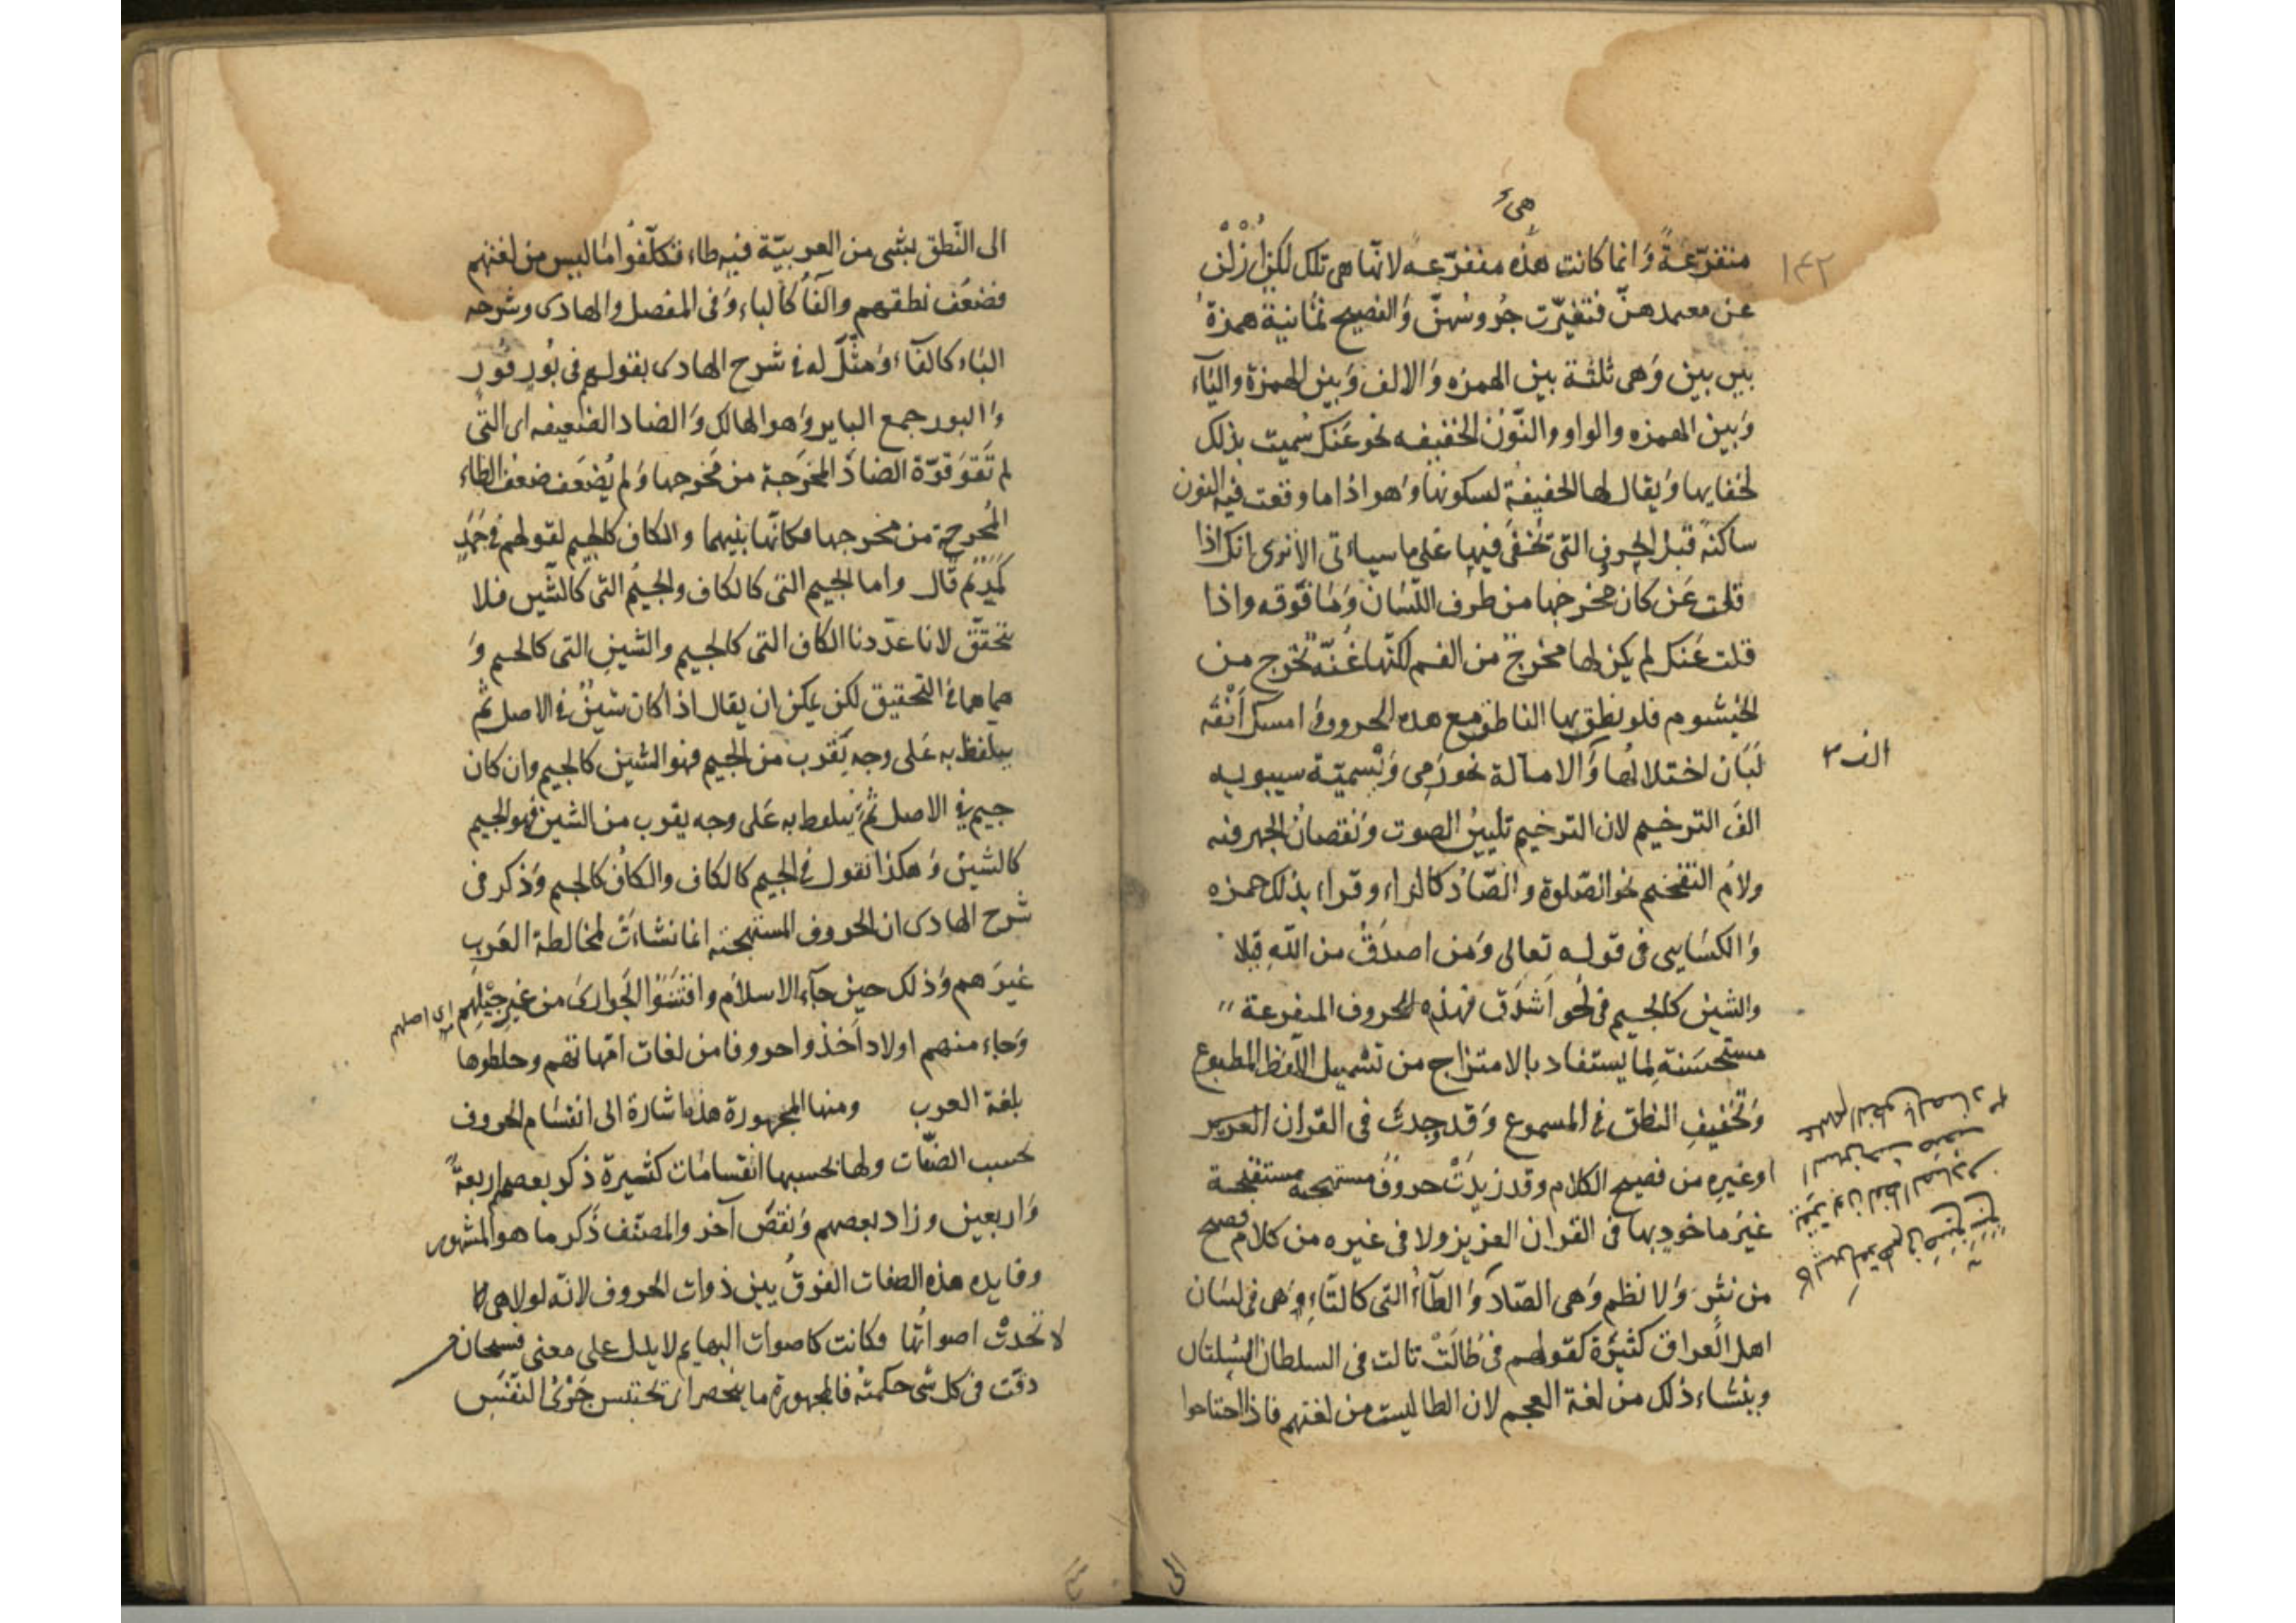 هى
١٤٢
متفرّعةً وَانما كانت هذه متفرّعه لانّها هى تلك لكن اُزلْن
عن معتمدهنّ فتغيّرت جُروسُهنّ وَالفصيح ثمانية همزةُ
بين بين وَهى ثلثة بين الهمزه وَالالف وَبين الهمزة والياء
وَبين الهمزه والواو والنّون الخفيفه نحو عَنك سُميت بذلك
لخفايها وَيقال لها الخفيفة لسكونها وَهو اذا ما وقعت فيه النون
ساكنة قبل الحروف التى تخفى فيها على ما سياءتى الا ترى انك اذا
قلت عَن كان مخرجها من طرف اللّسان وَمَا فوقه واذا
قلت عَنك لم يكن لها مخرج من الفم لكنّها غُنّة تخرج من
الخيشوم فلو نطق بها الناطق مع هذه الحروف وامسك اَنْفَه
لبَان اختلالُها وَالامالة نحو رَمى وَتسميّة سيبويه
الف
الفَ الترخيم لان الترخيم تليينُ الصوت وَنقصانُ الجهر فيه
ولامُ التفخيم نحو الصّلوة والصّادُ كالزاء وقراء بذلك حمزه
وَالكسايى فى قوله تعالى وَمن اصدَقُ من اللّهِ قيلا
والشين كالجيم فى نحو اَشدَق فهذه الحروف المتفرعة
مستحسَنة لِما يستفاد بالامتزاج من تسهيل اللّفظ المطبوع
وَتخفيفِ النطق فى المسموع وَقد وجدت فى القران العزيز
اوغيرِه من فصيح الكلام وقد زيدَتْ حروفٌ مستهجنة مستقبحة
غيرَ ماخوذ بها فى القران العزيز ولا فى غيره من كلام فصيح
من نثرٍ وَلا نظم وَهى الصّاد وَالطّاءُ التى كالتّاء وَهى فى لسَان
اهل العراق كثيرة كقولهم فى طالَتْ تالت فى السلطان السّلتان
وينشاء ذلك من لغة العجم لان الطا ليست من لغتهم فاذا احتاجوا
الى
الى النّطق بشى من العربيّة فيه طاء تكلّفُوا ما ليس من لغتهم
فضعُف نطقهم والفَاُ كالباء وَفى المفصل والهادى وشرحه
البَاء كالفآء وَمثّل له فى شرح الهادى بقولهم فى بُور فُور
وَالبور جمع الباير وَهو الهالك وَالضاد الضعيفه اى التى
لم تَقوَ قوّة الضاد المخرَجة من مَخرجها وَلم يُضعَف ضعف الظاء
المُخرجة من مخرجها فكانّها بينهما والكاف كالجيم لقولهم فى جَمَل
كَمَل ثم قال واما الجيم التى كالكاف والجيمُ التى كالشّين فلا
يتحقّق لانا عدّدنا الكاف التى كالجيم والشين التى كالجيم وَ
هما هما فى التحقيق لكن يمكن ان يقال اذا كان شينٌ فى الاصل ثم
يتلفظ به عَلى وجه يَقرب من الجيم فهو الشين كالجيم وان كان
جيم فى الاصل ثم يتلفظ به عَلى وجه يقرب من الشين فهو الجيم
كالشين وَهكذا نقول فى الجيم كالكاف والكاف كالجيم وَذكر فى
شرح الهادى ان الحروف المستهجنه انما نشاءَت لمخالطة العَرب
غيرَهم وَذلك حين جآء الاسلام وافتَنَوُا الجَوارى من غير جيْلِهم
اى اصلهم
وَجاء منهم اولاد اَخذوا حروفا من لغات امّهاتهم وخلطوها
بلغة العرب ومنها المجهورة هذه اشارة الى انقسَام الحروف
بحسب الصّفات ولها بحسبها انقسامَات كثيرة ذكر بعضهم اربعةً
وَاربعين وزاد بعضهم وَنقصَ آخر والمصنّف ذكر ما هو المشهور
وفايده هذه الصفات الفرقُ بين ذوات الحروف لانّه لولا هى
لا تحدثُ اصواتُها وكانت كاصوات البهايم لا يدل على معنى فسبحان
دقّت فى كل شى حكمتُه فالمجهورة ما ينحصر اى تحتبس جَرْىُ النّفَس